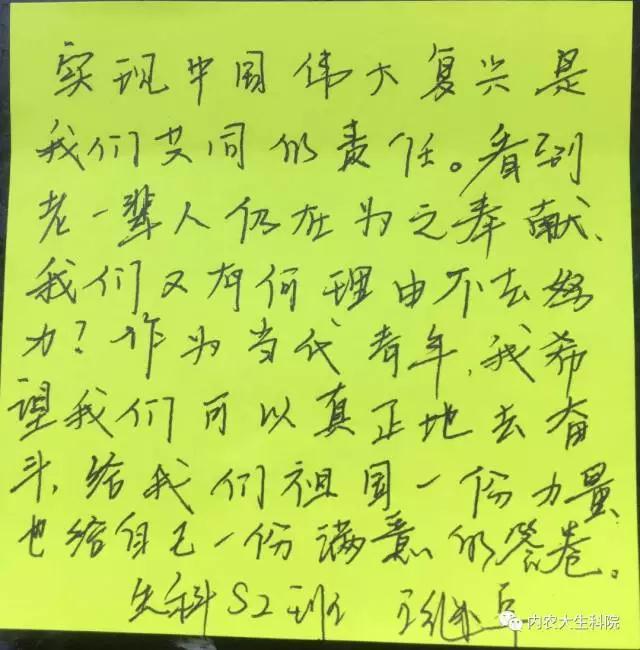 实现中国伟大复兴是
我们共同的责任。看到
老一辈人仍在为之奉献、
我们又有何理由不去努
力？作为当代青年,我希
望我们可以真正地去奋
斗,给我们祖国一份力量
也给自己一份满意的答卷。
生科S2班 王继
内农大生科院